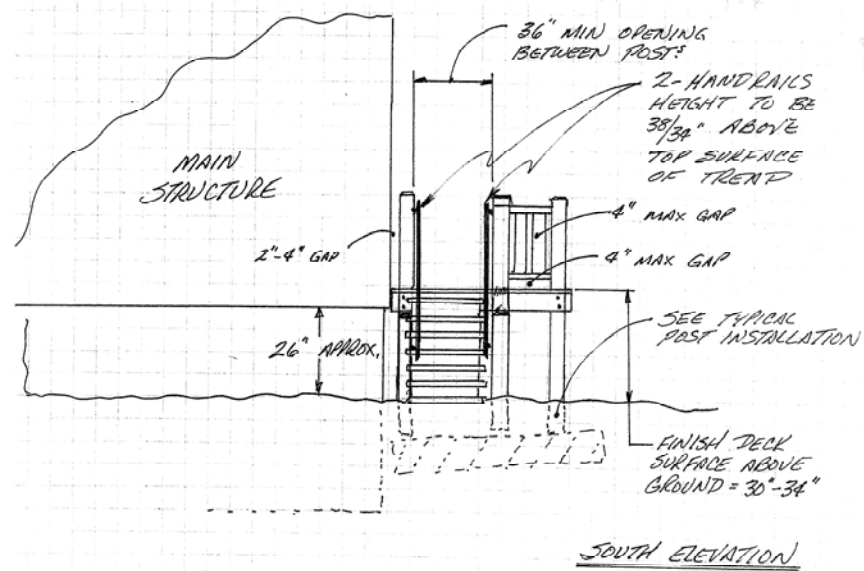 36" MIN OPENING
BETWEEN POSTS
2-HANDRAILS
HEIGHT TO BE
38/34" ABOVE
TOP SURFACE
OF TREAD
MAIN
STRUCTURE
4" MAX GAP
2"-4" GAP
4" MAX GAP
SEE TYPICAL
POST INSTALLATION
26" APPROX.
FINISH DECK
SURFACE ABOVE
GROUND = 30"-34"
SOUTH ELEVATION